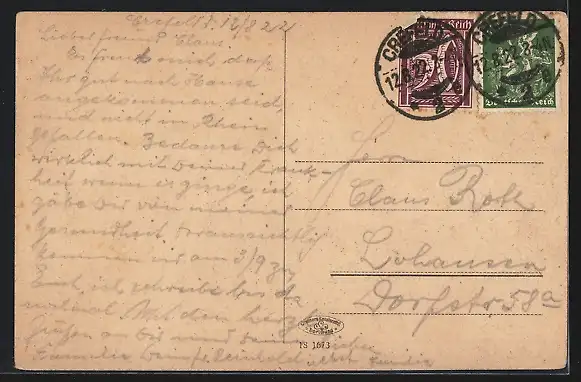 Crefeld, 12/8 22
Lieber Freund Claus
Es freut mich daß
Ihr gut nach Hause
angekommen seid,
und nicht in Rhein
gefallen. Bedaure Dich
wirklich mit Deiner Krank-
heit wenn es ginge ich
gäbe Dir von meiner
Gesundheit. Voraussichtlich
kommen wir am 3/9 zu
Euch, ich schreibe bis da
nochmal. Mit den herz
Grüßen an Dir und Deine
Familie Reinhold nebst Familie
Herrn
Claus Roth
Lohausen
Dorfstr 58a
CREFELD
12.8.22
CREFELD
12.8.22
Deutsches Reich
TS 1673